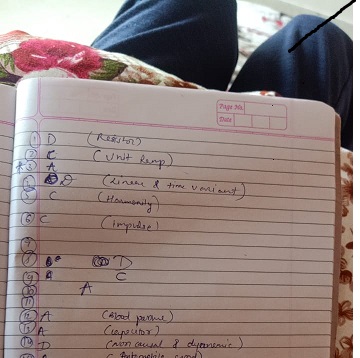 Page No.
Date
1 D (Resistor)
2 C (Unit Ramp)
3 A
4 D (Linear & time variant)
5 C (Harmonity)
6 C (impulse)
7
8 D
9 C
10 A
11
12 A
13 A (capacitor)
14 D (non causal & dynamic)